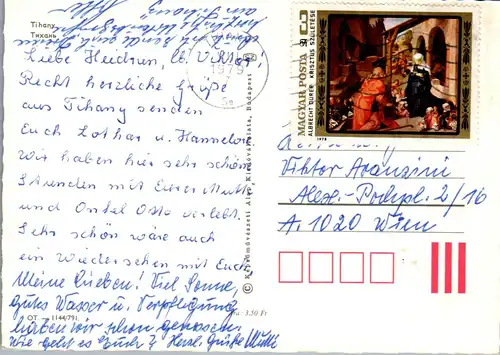 Tihany
Тихань
Liebe Heidrun, lb. Viktor,
Recht herzliche Grüße
aus Tihany senden
Euch Lothar u. Hannelore
Wir haben hier sehr schöne
Stunden mit Eurer Mutti
und Onkel Otto verlebt.
Sehr schön wäre auch
ein Wiedersehen mit Euch
Meine Lieben! Viel Sonne,
gutes Wasser u. Verpflegung
haben wir schon genossen.
Wie geht es Euch? Herzl. Grüße Mutti
OT — 1144/791
Ára: 3.50 Ft
© Képzőművészeti Alap Kiadóvállalata, Budapest
1979
MAGYAR POSTA
ALBRECHT DÜRER: KRISZTUS SZÜLETÉSE
1978
Viktor
Alex.-Pochpl. 2/16
A. 1020 Wien